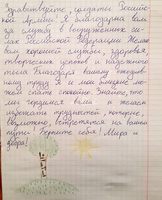 Здравствуйте, солдаты Россий-
ской Армии! Я благодарна вам
за службу в вооруженных си-
лах Российской Федерации. Желаю
вам хорошей службы, здоровья,
творческих успехов и надежного
тыла. Благодаря вашему ежеднев-
ному труду я и мои близкие мо-
жем спать спокойно. Знайте, что
мы гордимся вами и желаем
избежать трудностей, которые,
возможно, встретятся на вашем
пути. Берегите себя! Мира и
добра!